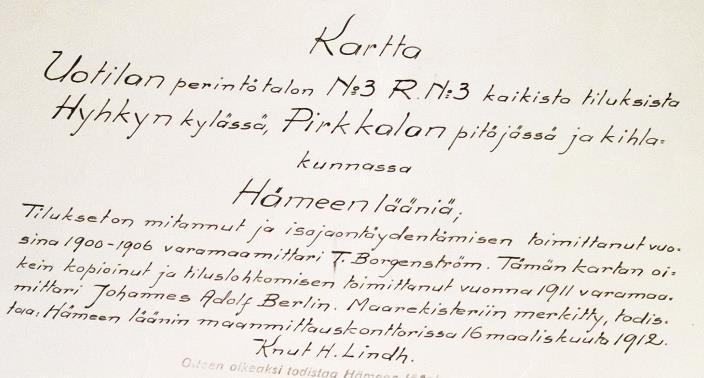 Kartta
Uotilan perintötalon N:3 R.N:3 kaikista tiluksista
Hyhkyn kylässä, Pirkkalan pitäjässä ja kihla=
kunnassa
Hämeen lääniä;
Tilukset on mitannut ja isojaontäydentämisen toimittanut vuo=
sina 1900-1906 varamaamittari T. Borgenström. Tämän kartan oi=
kein kopioinut ja tiluslohkomisen toimittanut vuonna 1911 varamaa=
mittari Johannes Adolf Berlin. Maarekisteriin merkitty, todis=
taa: Hämeen läänin maanmittauskonttorissa 16 maaliskuuta 1912.
Knut H. Lindh.
Otteen oikeaksi todistaa Hämeen